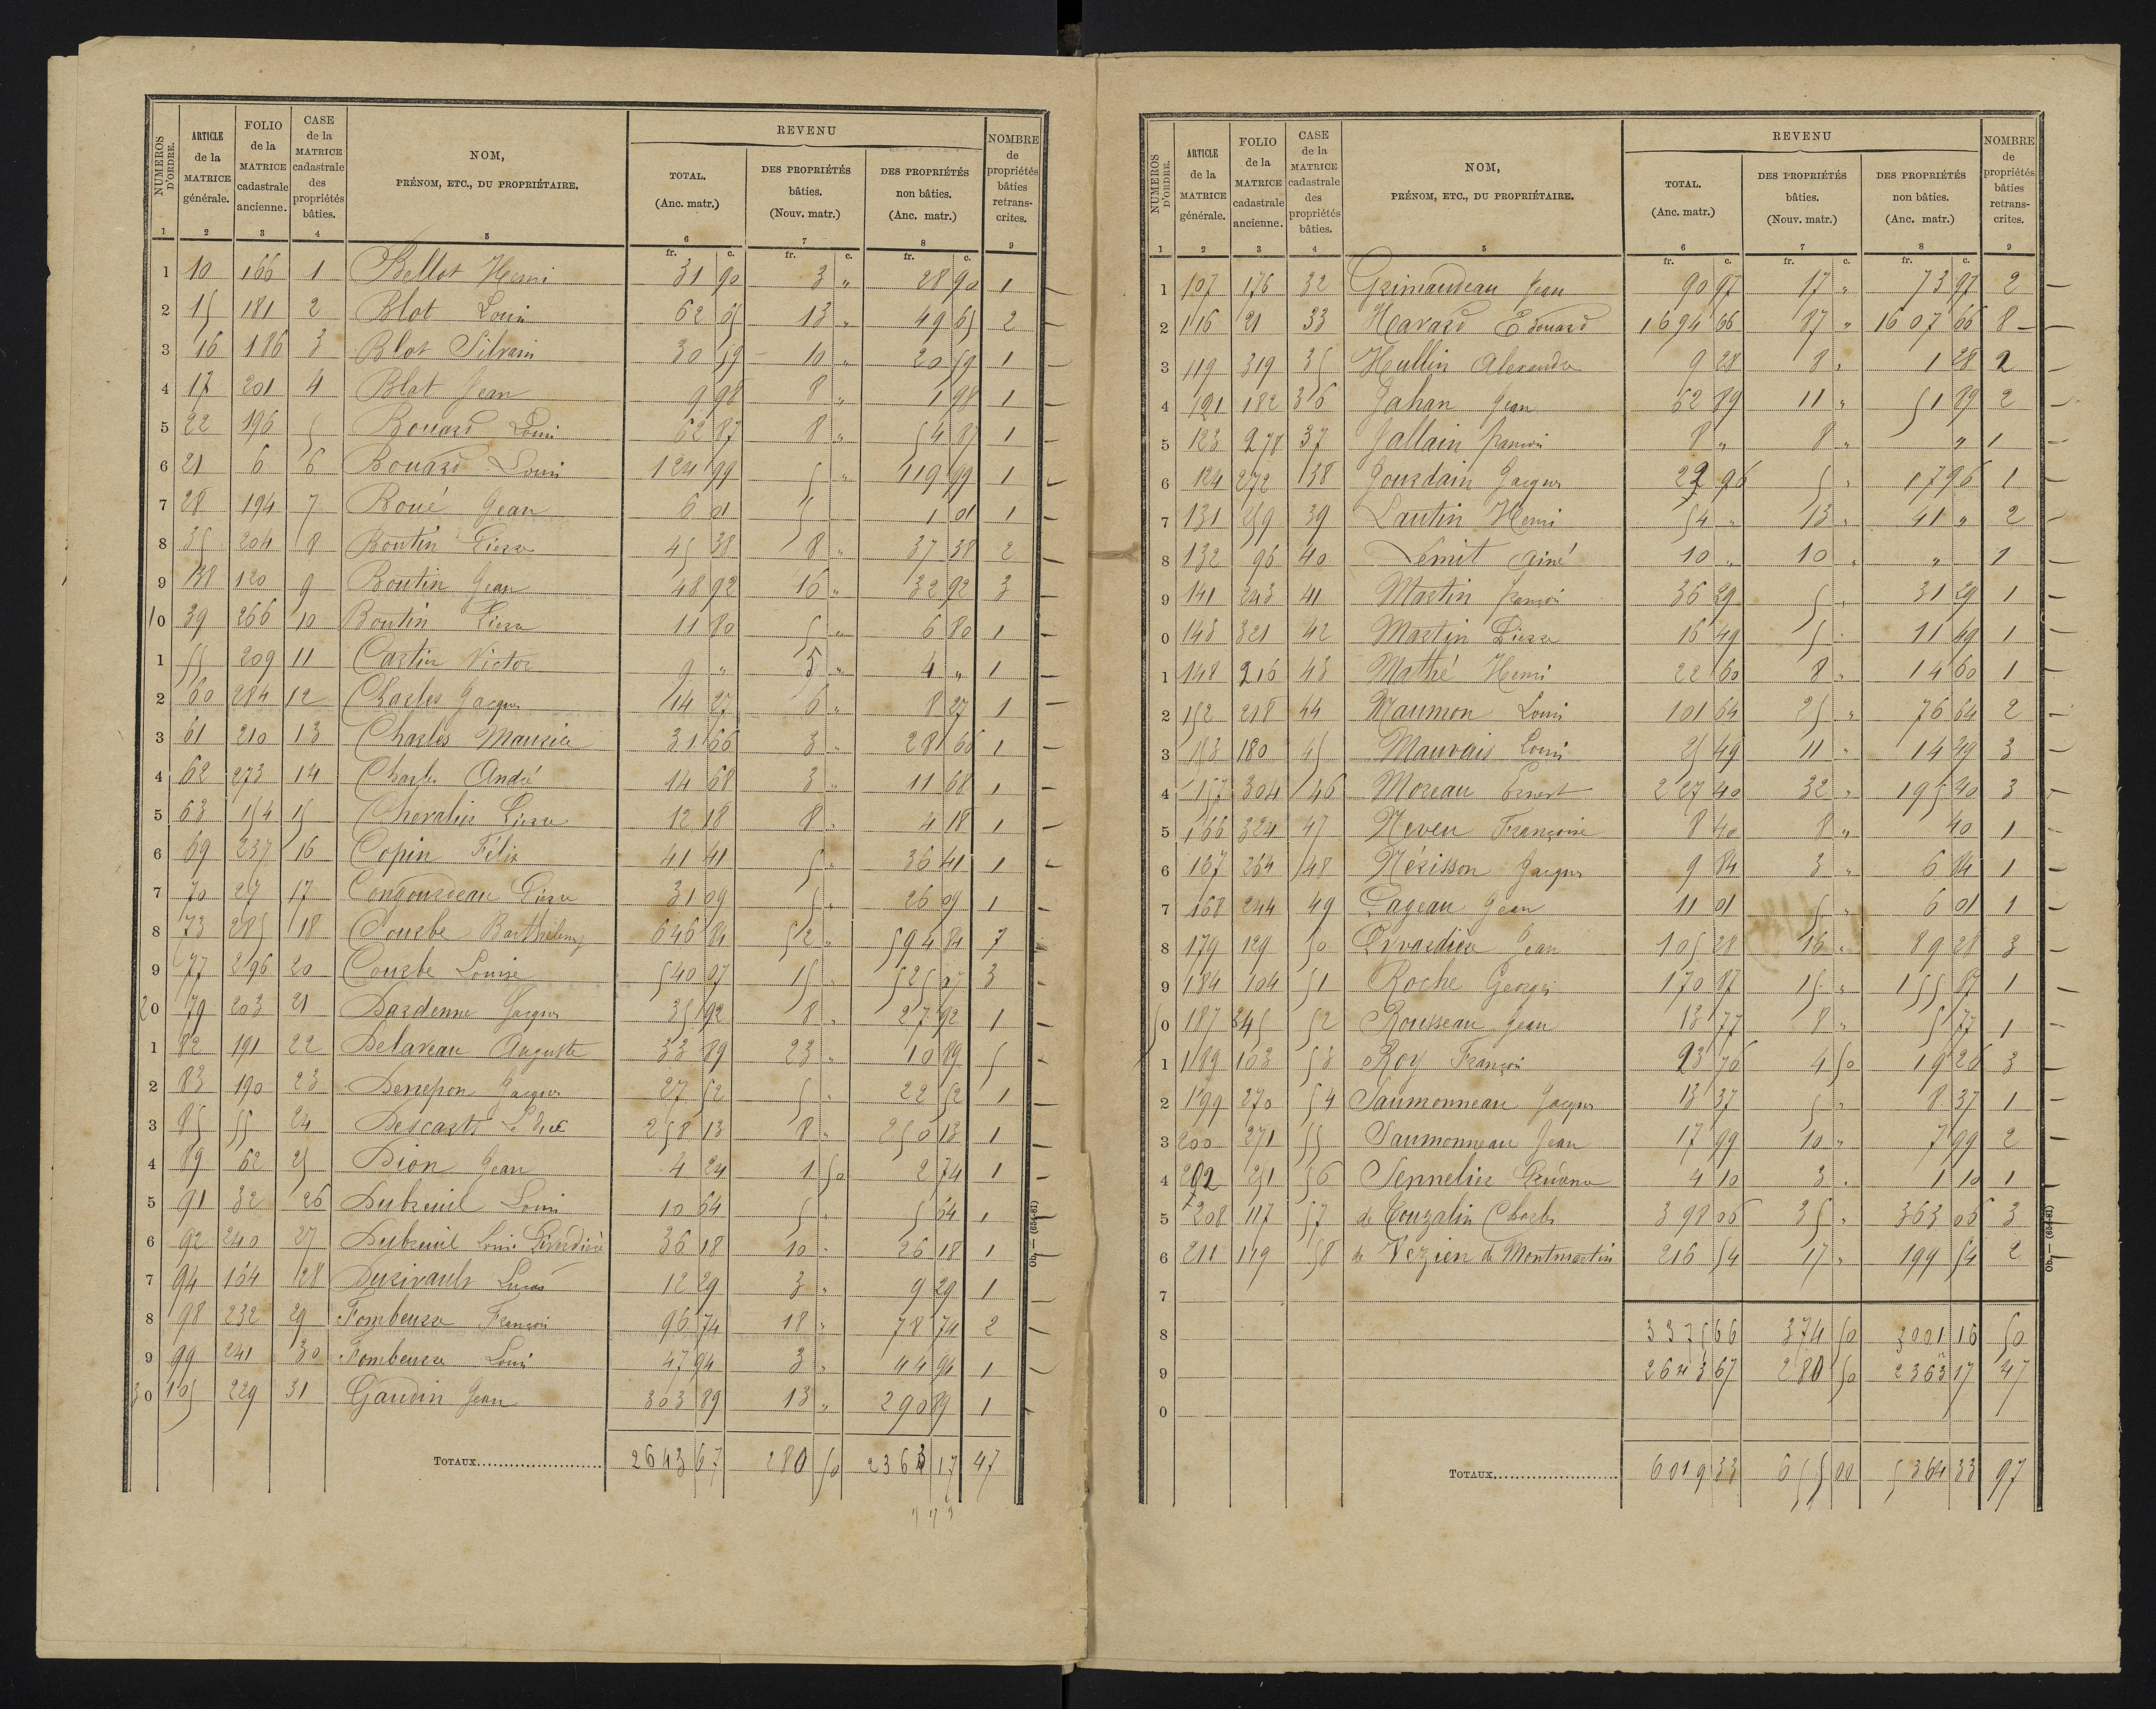 NUMÉROS D'ORDRE. | ARTICLE de la MATRICE générale. | FOLIO de la MATRICE cadastrale ancienne. | CASE de la MATRICE cadastrale des propriétés bâties. | NOM, PRÉNOM, ETC., DU PROPRIÉTAIRE. | REVENU TOTAL. (Anc. matr.) | DES PROPRIÉTÉS bâties. (Nouv. matr.) | DES PROPRIÉTÉS non bâties. (Anc. matr.) | NOMBRE de propriétés bâties retranscrites.
1 | 2 | 3 | 4 | 5 | 6 | 7 | 8 | 9
fr. c. fr. c. fr. c.
1 10 166 1 Bellot Henri 31 90 3 " 28 90 1
2 15 181 2 Blot Louis 62 65 13 " 49 65 2
3 16 186 3 Blot Silvain 30 59 10 " 20 59 1
4 17 201 4 Blot Jean 9 98 8 " 1 98 1
5 22 196 5 Bouard Louis 62 87 8 " 54 87 1
6 21 6 6 Bouard Louis 124 99 5 " 119 99 1
7 28 194 7 Boué Jean 6 01 5 1 01 1
8 35 204 8 Boutin Pierre 45 38 8 " 37 38 2
9 38 120 9 Boutin Jean 48 92 16 " 32 92 3
10 39 266 10 Boutin Pierre 11 80 5 " 6 80 1
1 55 209 11 Cartin Victor 9 " 5 " 4 " 1
2 60 284 12 Charles Jacques 14 27 6 " 8 27 1
3 61 210 13 Charles Maurice 31 66 3 " 28 66 1
4 62 273 14 Charles André 14 68 3 " 11 68 1
5 63 154 15 Chevalier Pierre 12 18 8 " 4 18 1
6 69 237 16 Copin Félix 41 41 5 " 36 41 1
7 70 27 17 Congourdeau Pierre 31 09 5 " 26 09 1
8 73 285 18 Courbe Barthélemy 646 84 52 " 594 84 7
9 77 296 20 Courbe Louise 540 07 15 " 525 07 3
20 79 203 21 Dardenne Jacques 35 92 8 " 27 92 1
1 82 191 22 Delaveau Auguste 33 89 23 " 10 89 5
2 83 190 23 Jacques 27 52 5 " 22 52 1
3 85 55 24 Descarts 258 13 8 " 250 13 1
4 89 62 25 Dion Jean 4 24 1 50 2 74 1
5 91 32 26 Dubreuil Louis 10 64 5 " 5 64 1
6 92 240 27 Dubreuil Louis Pivardière 36 18 10 " 26 18 1
7 94 164 28 Durivault Lucas 12 29 3 " 9 29 1
8 98 232 29 Fombeure François 96 74 18 " 78 74 2
9 99 241 30 Fombeure Louis 47 94 3 " 44 94 1
30 105 229 31 Gaudin Jean 303 89 13 " 290 89 1
TOTAUX 2643 67 280 50 2363 17 47
Ob.— (654-81)
NUMÉROS D'ORDRE. | ARTICLE de la MATRICE générale. | FOLIO de la MATRICE cadastrale ancienne. | CASE de la MATRICE cadastrale des propriétés bâties. | NOM, PRÉNOM, ETC., DU PROPRIÉTAIRE. | REVENU TOTAL. (Anc. matr.) | DES PROPRIÉTÉS bâties. (Nouv. matr.) | DES PROPRIÉTÉS non bâties. (Anc. matr.) | NOMBRE de propriétés bâties retranscrites.
1 | 2 | 3 | 4 | 5 | 6 | 7 | 8 | 9
fr. c. fr. c. fr. c.
1 107 176 32 Grimaudeau Jean 90 97 17 " 73 97 2
2 116 21 33 Havard Edouard 1694 66 87 " 1607 66 8
3 119 319 35 Hullin Alexandre 9 28 8 " 1 28 2
4 121 182 36 Jahan Jean 62 89 11 " 51 89 2
5 123 278 37 Jallain François 8 " 8 " " 1
6 124 272 38 Jourdain Jacques 22 96 5 " 17 96 1
7 131 259 39 Lautin Henri 54 " 13 " 41 " 2
8 132 96 40 Lémit ainé 10 " 10 " " 1
9 141 243 41 Martin François 36 29 5 " 31 29 1
0 143 321 42 Martin Pierre 16 49 5 " 11 49 1
1 148 216 43 Mathé Henri 22 60 8 " 14 60 1
2 152 218 44 Maumon Louis 101 64 25 " 76 64 2
3 153 180 45 Mauvais Louis 25 49 11 " 14 49 3
4 157 304 46 Moreau Ernest 227 40 32 " 195 40 3
5 166 324 47 Neveu Françoise 8 40 8 " 40 1
6 167 264 48 Nérisson Jacques 9 84 3 " 6 84 1
7 168 244 49 Pageau Jean 11 01 5 " 6 01 1
8 179 129 50 Pivardière Jean 105 28 16 " 89 28 3
9 184 104 51 Roche Georges 170 87 15 " 155 87 1
50 187 245 52 Rousseau Jean 13 77 8 " 5 77 1
1 189 103 53 Roy François 23 76 4 50 19 26 3
2 199 270 54 Saumonneau Jacques 13 37 5 " 8 37 1
3 200 271 55 Saumonneau Jean 17 99 10 " 7 99 2
4 202 251 56 Sennelier 4 10 3 " 1 10 1
5 208 117 57 de Touzalin Charles 398 06 35 " 363 06 3
6 211 119 58 de Vezien de Montmartin 216 54 17 " 199 54 2
7
8 3375 66 374 50 3001 16 50
9 2643 67 280 50 2363 17 47
0
TOTAUX 6019 33 655 00 5364 33 97
Ob.— (654-81)